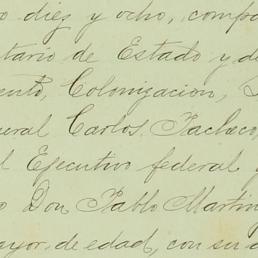 o diez y ocho, compa
tario de Estado y de
ento, Colonizacion,
eral Carlos Pacheco,
l Ejecutivo federal y
o Don Pablo Martin
ayor de edad, con su